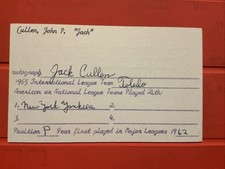 Cullen, John P. "Jack"
autograph Jack Cullen
1965 International League Team Toledo
American or National League Teams Played With
1. New York Yankees 2.
3. 4.
Position P Year first played in Major Leagues 1962